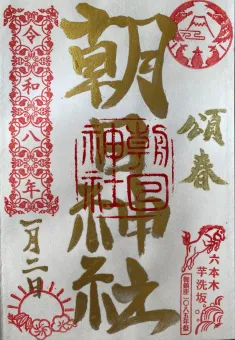 頌春
六本木
芋洗坂
朝日神社
朝日
神社
令和八年
一月二日